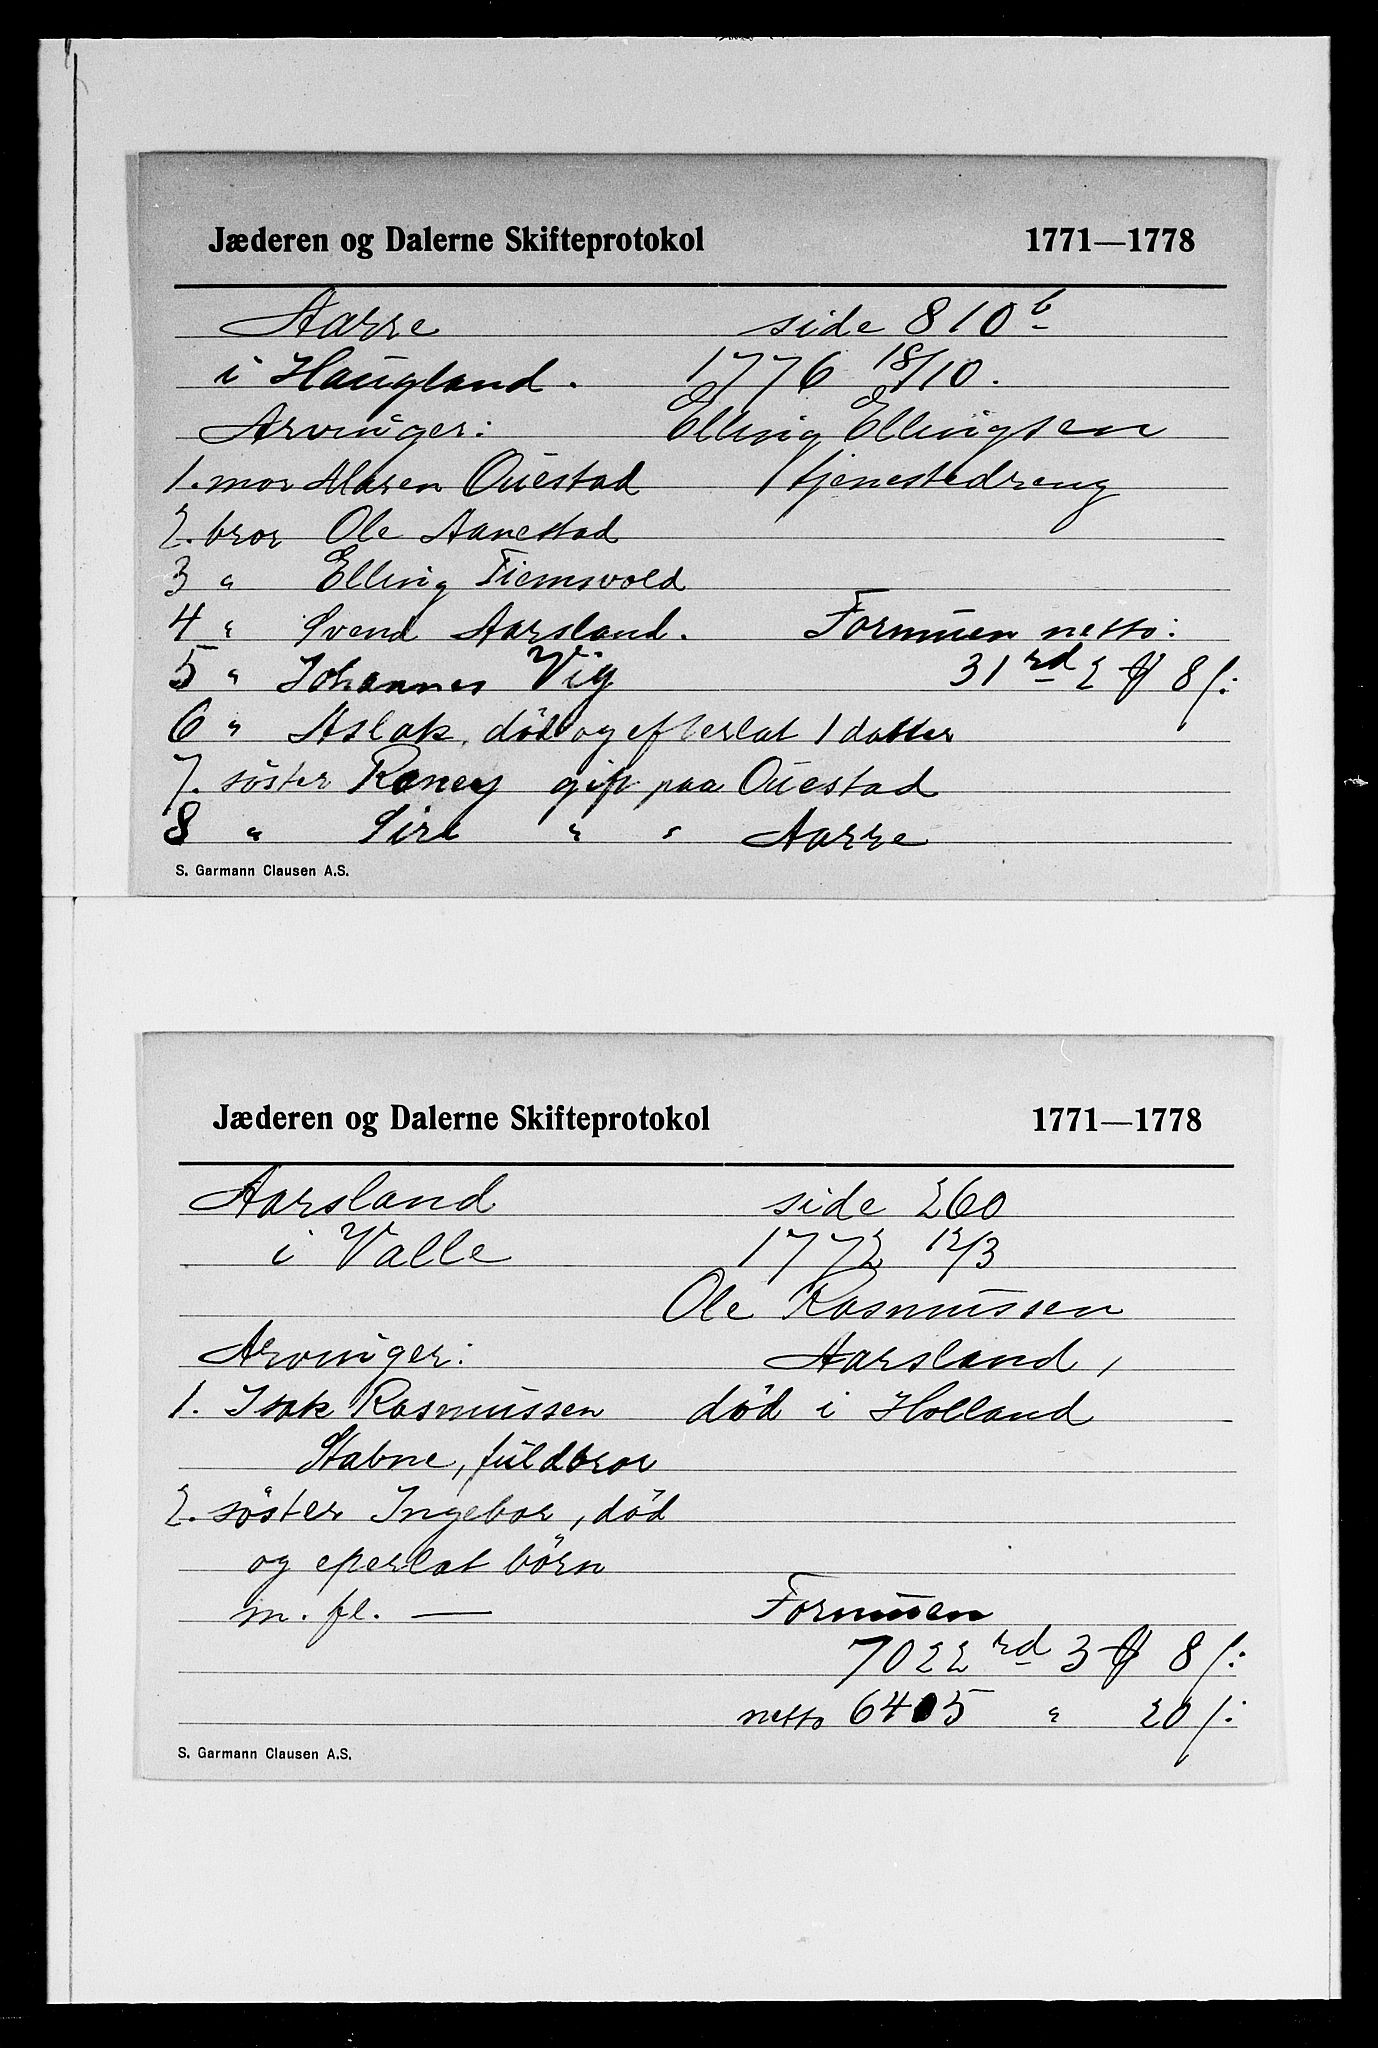 Jæderen og Dalerne Skifteprotokol 1771—1778
Aarre side 810 b
i Haugland. 1776 18/10.
Arvinger: Elling Ellingsen
1. mor Maren Ouestad tjenestedreng
2. bror Ole Aanestad
3 " Elling Tiemsvold
4 " Svend Aarsland. Formuen netto:
5 " Johannes Vig 31 rd 2 ₰ 8 s:
6 " Aslak, död og efterlat 1 datter
7. söster Raney gift paa Ouestad
8 " Siri " " Aarre
S. Garmann Clausen A.S.
Jæderen og Dalerne Skifteprotokol 1771—1778
Aarsland side 260
i Valle 1772 12/3
Ole Rasmussen
Arvinger: Aarsland,
1. Isak Rasmussen död i Holland
Stabne, fuldbror
2. söster Ingebor, död
og efterlat börn
m. fl. — Formuen
7022 rd 3 ₰ 8 s:
netto 6405 " 20 s:
S. Garmann Clausen A.S.